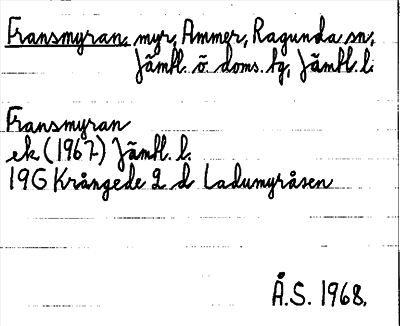 Fransmyran, myr, Ammer, Ragunda sn,
Jämtl. ö doms. tg, Jämtl. l.
Fransmyran
ek (1967) Jämtl. l.
19G Krångede 2 d Ladumyråsen
Å.S. 1968.